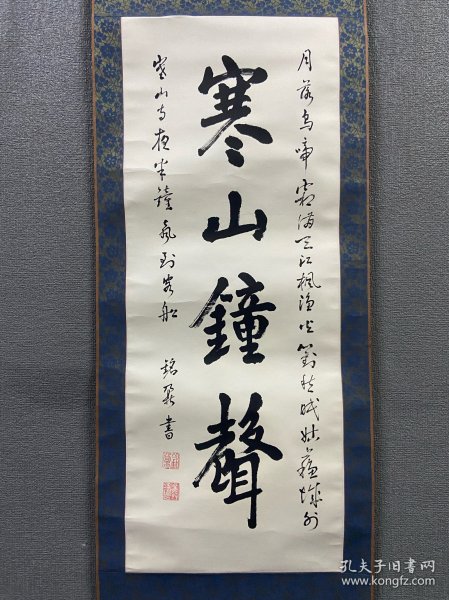 月落烏啼霜満天江枫渔火对愁眠姑蘇城外
寒山鐘聲
寒山寺夜半鐘聲到客船
銘發書
孔夫子旧书网
www.kongfz.com